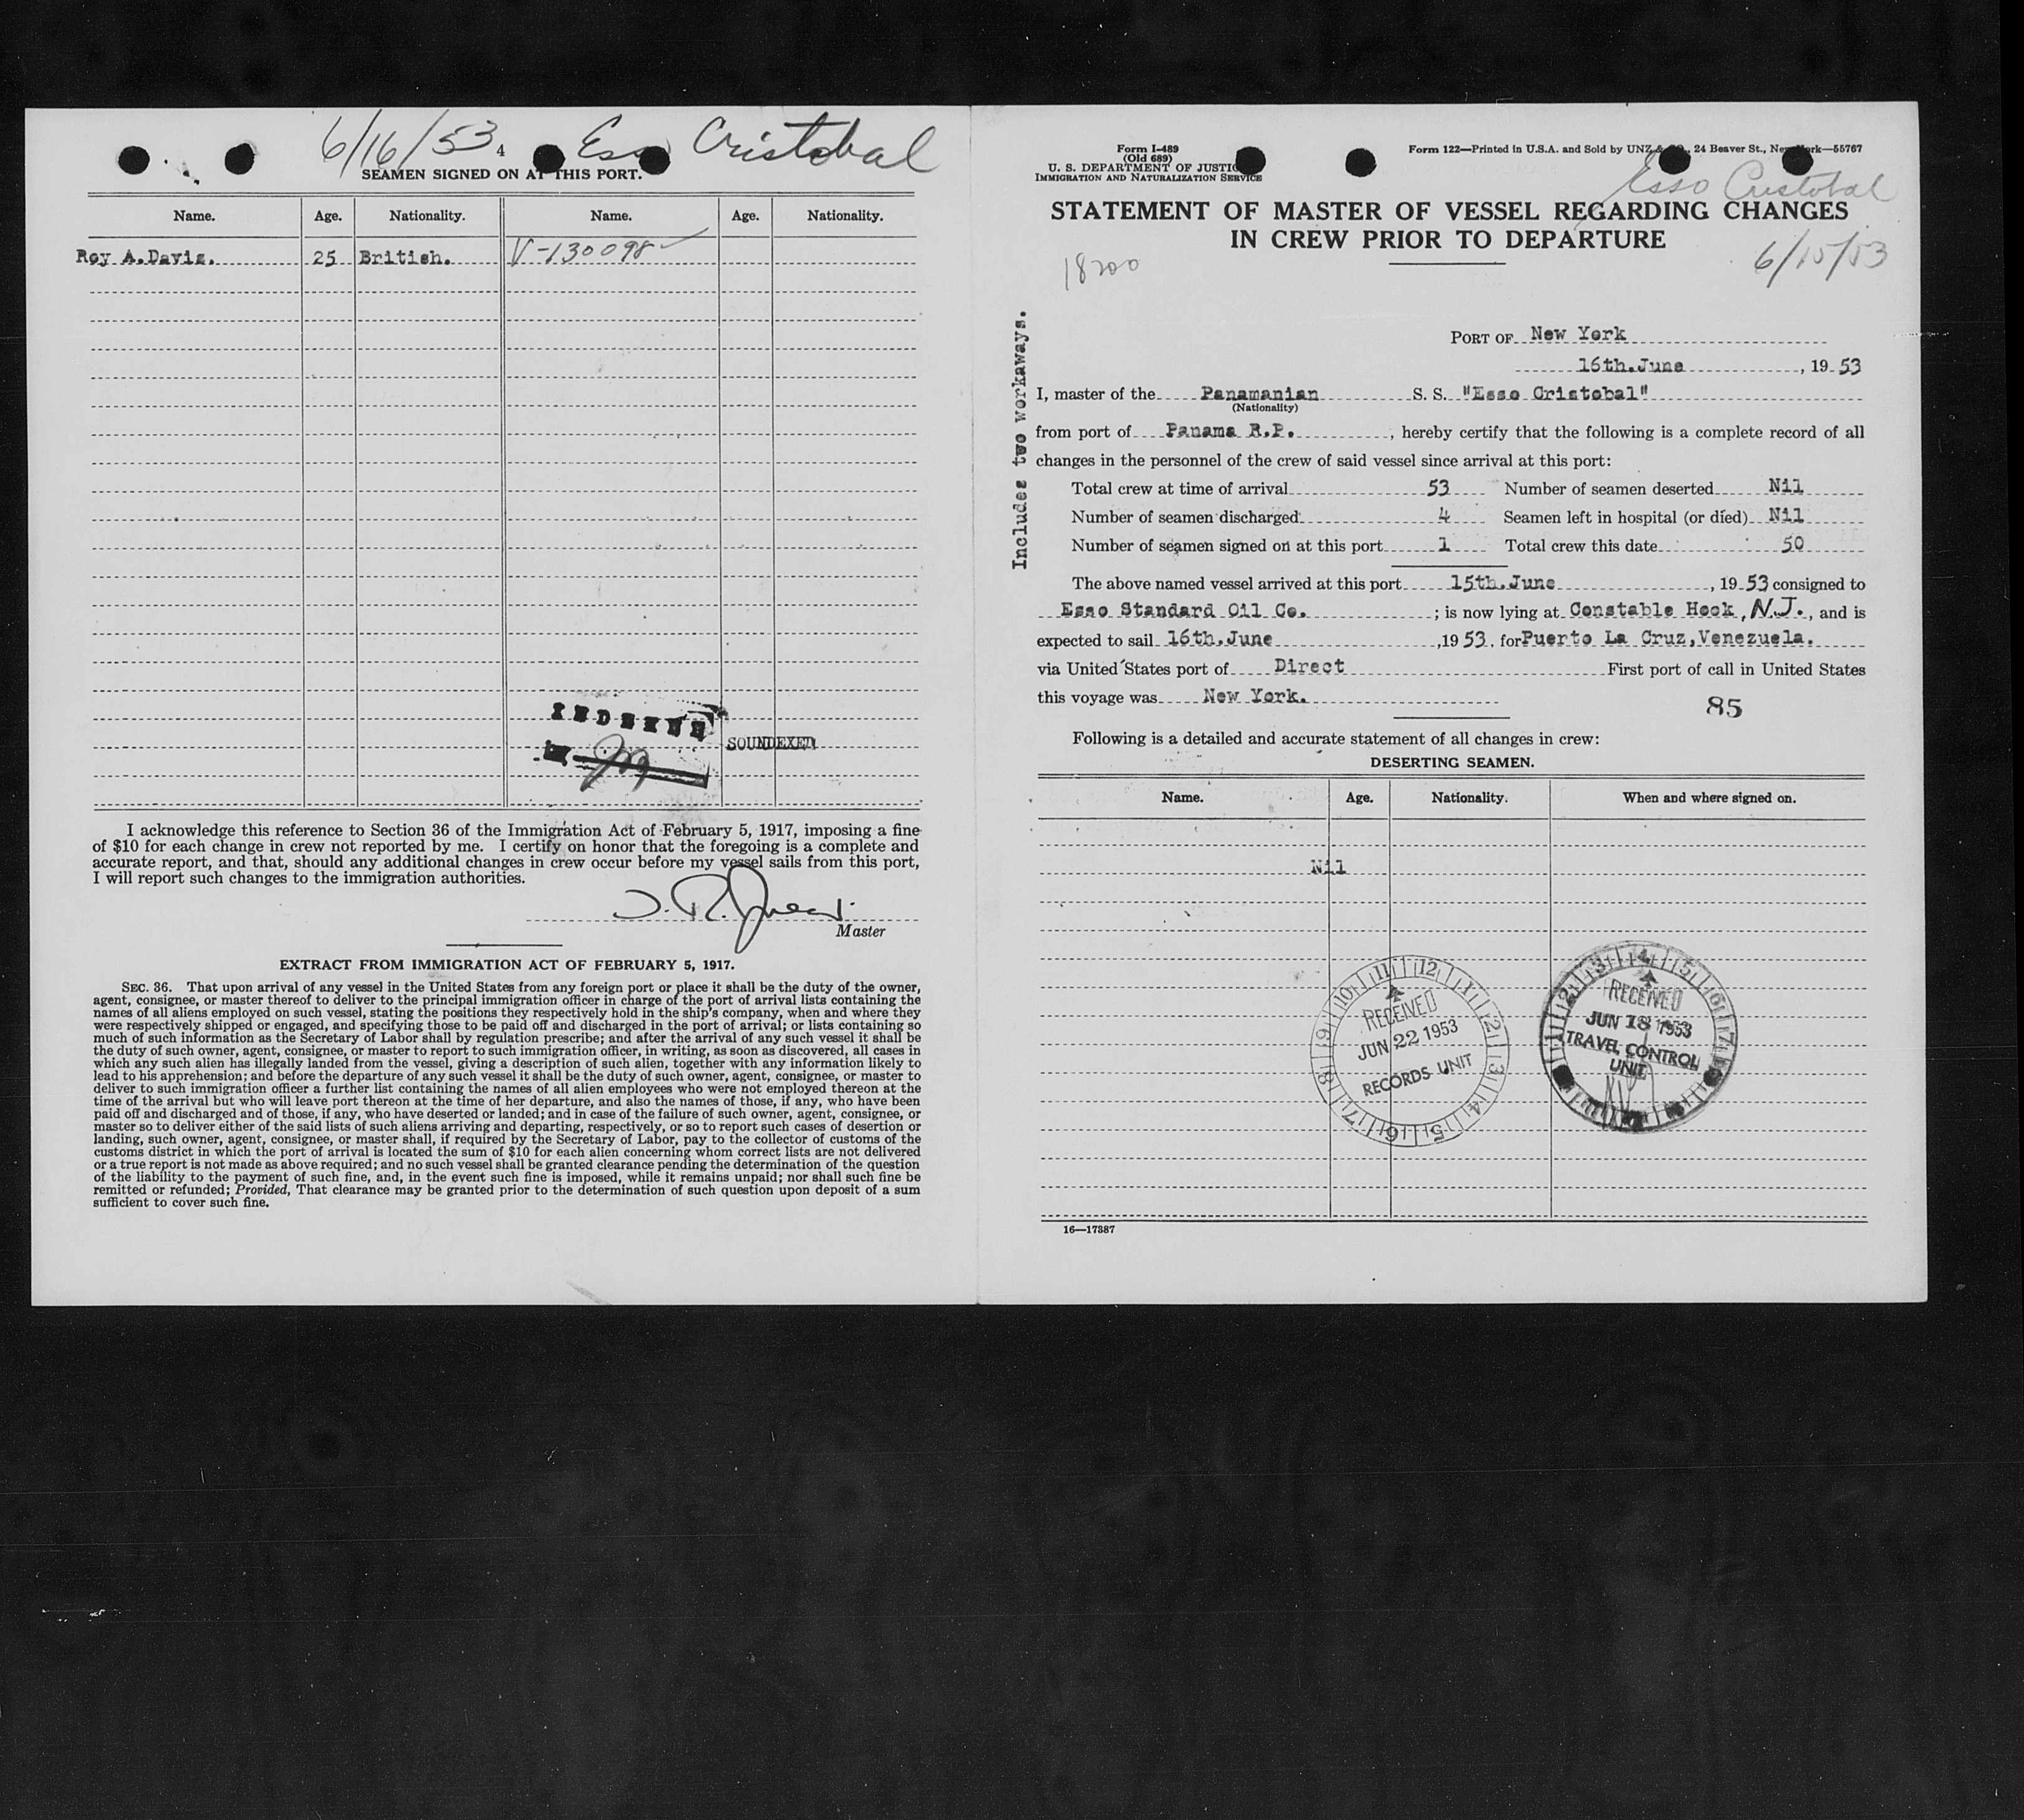 6/16/53 Esso Cristobal
4
SEAMEN SIGNED ON AT THIS PORT.
Name. Age. Nationality. Name. Age. Nationality.
Roy A.Davis. 25 British. V-130098
INDEXED
SOUNDEXED
I acknowledge this reference to Section 36 of the Immigration Act of February 5, 1917, imposing a fine
of $10 for each change in crew not reported by me. I certify on honor that the foregoing is a complete and
accurate report, and that, should any additional changes in crew occur before my vessel sails from this port,
I will report such changes to the immigration authorities.
Master
EXTRACT FROM IMMIGRATION ACT OF FEBRUARY 5, 1917.
SEC. 36. That upon arrival of any vessel in the United States from any foreign port or place it shall be the duty of the owner,
agent, consignee, or master thereof to deliver to the principal immigration officer in charge of the port of arrival lists containing the
names of all aliens employed on such vessel, stating the positions they respectively hold in the ship's company, when and where they
were respectively shipped or engaged, and specifying those to be paid off and discharged in the port of arrival; or lists containing so
much of such information as the Secretary of Labor shall by regulation prescribe; and after the arrival of any such vessel it shall be
the duty of such owner, agent, consignee, or master to report to such immigration officer, in writing, as soon as discovered, all cases in
which any such alien has illegally landed from the vessel, giving a description of such alien, together with any information likely to
lead to his apprehension; and before the departure of any such vessel it shall be the duty of such owner, agent, consignee, or master to
deliver to such immigration officer a further list containing the names of all alien employees who were not employed thereon at the
time of the arrival but who will leave port thereon at the time of her departure, and also the names of those, if any, who have been
paid off and discharged and of those, if any, who have deserted or landed; and in case of the failure of such owner, agent, consignee, or
master so to deliver either of the said lists of such aliens arriving and departing, respectively, or so to report such cases of desertion or
landing, such owner, agent, consignee, or master shall, if required by the Secretary of Labor, pay to the collector of customs of the
customs district in which the port of arrival is located the sum of $10 for each alien concerning whom correct lists are not delivered
or a true report is not made as above required; and no such vessel shall be granted clearance pending the determination of the question
of the liability to the payment of such fine, and, in the event such fine is imposed, while it remains unpaid; nor shall such fine be
remitted or refunded; Provided, That clearance may be granted prior to the determination of such question upon deposit of a sum
sufficient to cover such fine.
Form I-489
(Old 689)
U. S. DEPARTMENT OF JUSTICE
IMMIGRATION AND NATURALIZATION SERVICE
Form 122—Printed in U.S.A. and Sold by UNZ & CO., 24 Beaver St., New York—55767
Esso Cristobal
STATEMENT OF MASTER OF VESSEL REGARDING CHANGES
IN CREW PRIOR TO DEPARTURE
6/15/53
18200
Includes two workaways.
PORT OF New York
16th.June, 1953
I, master of the Panamanian S. S. "Esso Cristobal"
(Nationality)
from port of Panama R.P., hereby certify that the following is a complete record of all
changes in the personnel of the crew of said vessel since arrival at this port:
Total crew at time of arrival 53 Number of seamen deserted Nil
Number of seamen discharged 4 Seamen left in hospital (or died) Nil
Number of seamen signed on at this port 1 Total crew this date 50
The above named vessel arrived at this port 15th.June, 1953 consigned to
Esso Standard Oil Co. ; is now lying at Constable Hook, N.J., and is
expected to sail 16th.June, 1953, for Puerto La Cruz,Venezuela.
via United States port of Direct First port of call in United States
this voyage was New York.
85
Following is a detailed and accurate statement of all changes in crew:
DESERTING SEAMEN.
Name. Age. Nationality. When and where signed on.
Nil
RECEIVED
JUN 22 1953
RECORDS UNIT
RECEIVED
JUN 18 1953
TRAVEL CONTROL
UNIT
16—17887